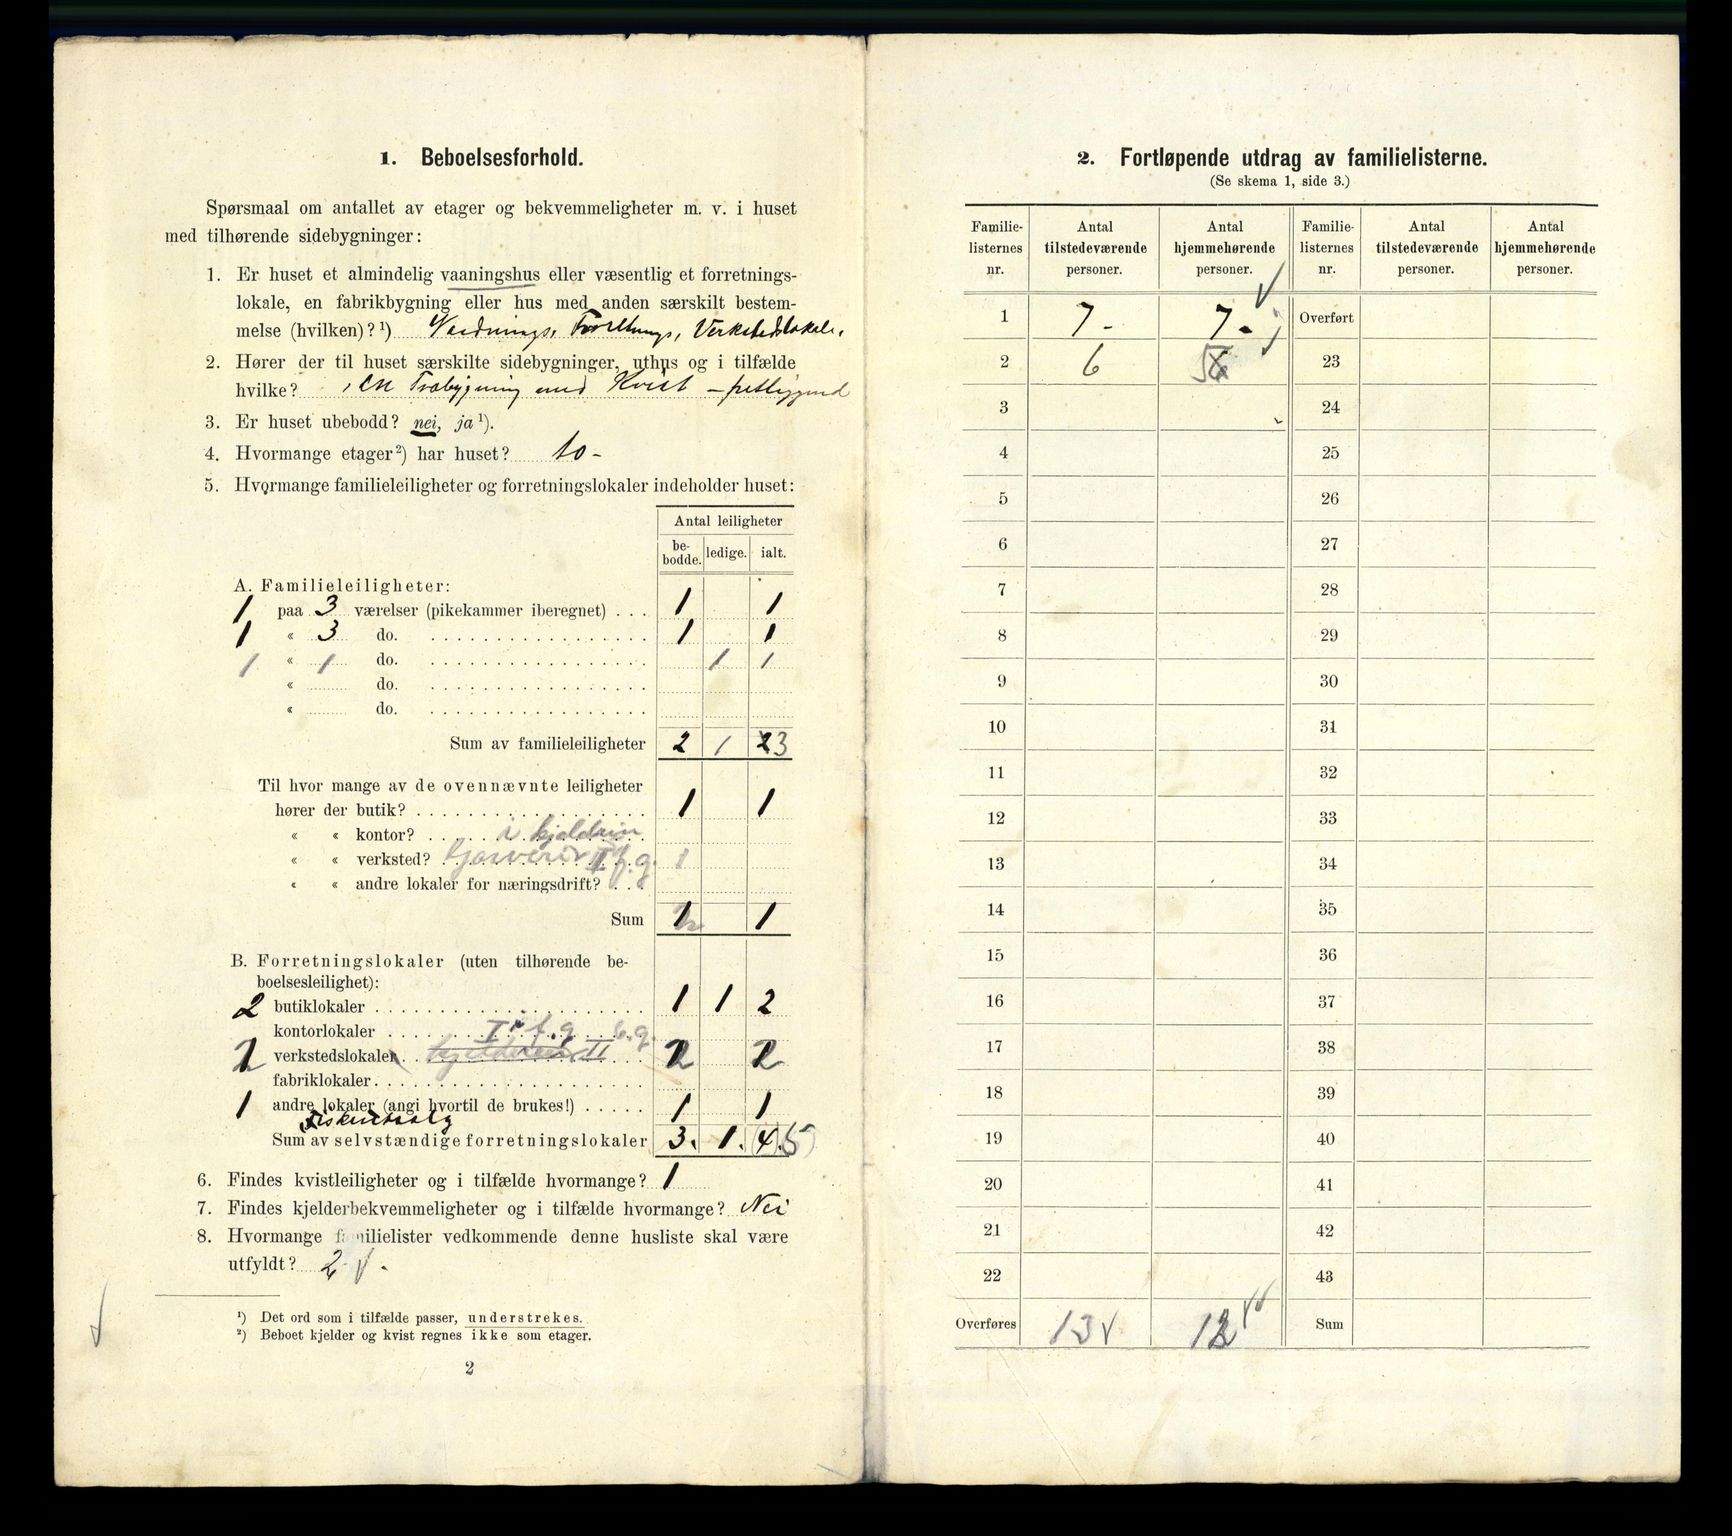 1. Beboelsesforhold.
Spørsmaal om antallet av etager og bekvemmeligheter m. v. i huset
med tilhørende sidebygninger:
1. Er huset et almindelig vaaningshus eller væsentlig et forretnings-
lokale, en fabrikbygning eller hus med anden særskilt bestem-
melse (hvilken)?¹) Vaanings, Forretnings, Verkstedslokale.
2. Hører der til huset særskilte sidebygninger, uthus og i tilfælde
hvilke? , en Træbygning med Kvist – fritliggend
3. Er huset ubebodd? nei, ja¹).
4. Hvormange etager²) har huset? to -
5. Hvormange familieleiligheter og forretningslokaler indeholder huset:
Antal leiligheter
be-bodde. ledige. ialt.
A. Familieleiligheter:
1 paa 3 værelser (pikekammer iberegnet) . . . 1 1
1 « 3 do. 1 1
1 « 1 do. 1 1
« do.
« do.
Sum av familieleiligheter 2 1 2 3
Til hvor mange av de ovennævnte leiligheter
hører der butik? 1 1
« « kontor? i kjelderen
« « verksted? II f. g. 1
« « andre lokaler for næringsdrift? . . .
Sum 1 1
B. Forretningslokaler (uten tilhørende be-
boelsesleilighet):
2 butiklokaler 1 1 2
kontorlokaler I f. g.
2 verkstedslokaler II 2 2
fabriklokaler
1 andre lokaler (angi hvortil de brukes!) 1 1
Fiskeutsalg
Sum av selvstændige forretningslokaler 3. 1. 4. (5)
6. Findes kvistleiligheter og i tilfælde hvormange? 1
7. Findes kjelderbekvemmeligheter og i tilfælde hvormange? Nei
8. Hvormange familielister vedkommende denne husliste skal være
utfyldt? 2 √ -
¹) Det ord som i tilfælde passer, understrekes.
²) Beboet kjelder og kvist regnes ikke som etager.
2
2. Fortløpende utdrag av familielisterne.
(Se skema 1, side 3.)
Familie-listernes nr. Antal tilstedeværende personer. Antal hjemmehørende personer. Familie-listernes nr. Antal tilstedeværende personer. Antal hjemmehørende personer.
1 7 - 7 - Overført
2 6 5 23
3 24
4 25
5 26
6 27
7 28
8 29
9 30
10 31
11 32
12 33
13 34
14 35
15 36
16 37
17 38
18 39
19 40
20 41
21 42
22 43
Overføres 13 √ 12 √√ Sum